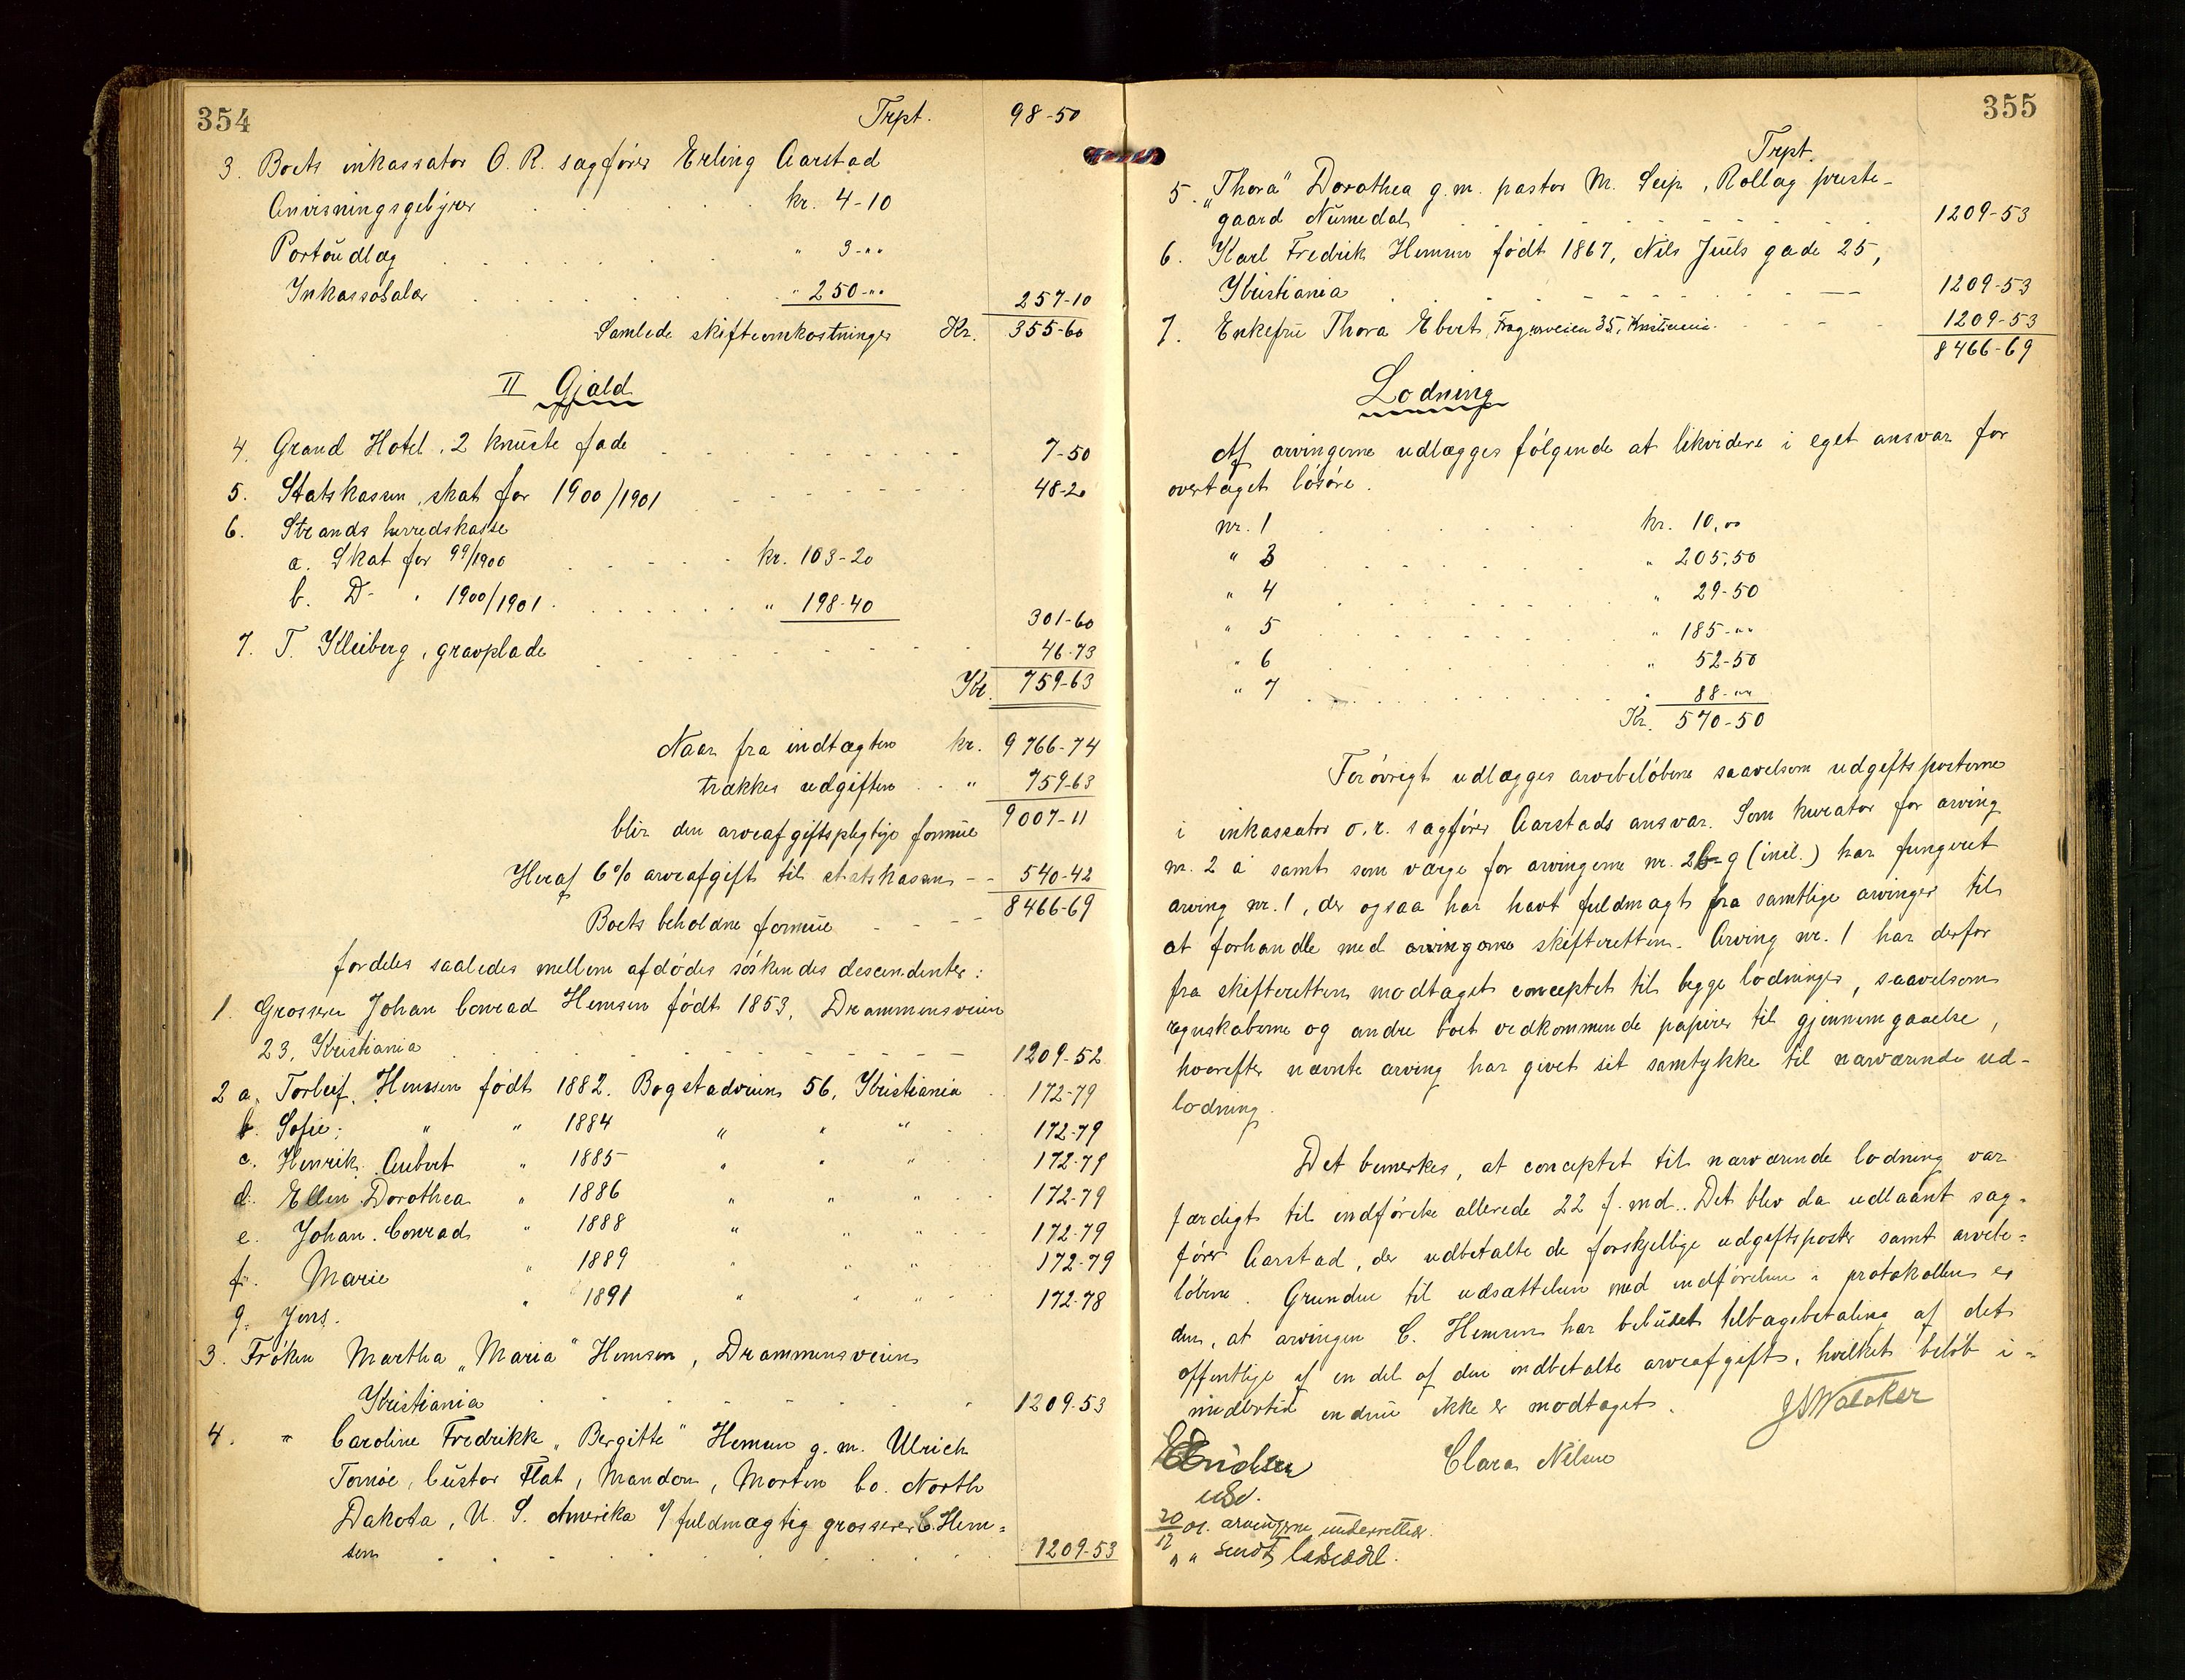 354
Trpt. 98-50
3. Boets inkassator O. R. sagfører Erling Aarstad
Anvisningsgebyrer kr. 4-10
Portoudlæg " 3-""
Inkassosalær " 250-"" 257-10
Samlede skifteomkostninger Kr. 355-60
II Gjæld
4. Grand Hotel, 2 knuste fade 7-50
5. Statskassen, skat for 1900/1901 48-20
6. Strands herredskasse
a. Skat for 99/1900 kr. 103-20
b. D- " 1900/1901 " 198-40 301-60
7. T. Kleiberg, gravplade 46-73
Kr. 759-63
Naar fra indtægten kr. 9766-74
trækkes udgiften " 759-63
blir den arveafgiftspligtige formue 9007-11
Heraf 6% arveafgift til statskassen 540-42
Boets beholdne formue 8466-69
fordeles saaledes mellem afdødes søskendes descendenter:
1. Grosserer Johan Conrad Hemsen født 1853, Drammensveien
23, Kristiania 1209-52
2 a. Torleif Hemsen født 1882. Bogstadveien 56, Kristiania 172-79
b. Sofie " " 1884 " " " 172-79
c. Henrik Aubert " 1885 " " " 172-79
d. Ellen Dorothea " 1886 " " " 172-79
e. Johan Conrad " 1888 " " " 172-79
f. Marie " 1889 " " " 172-79
g. Jens. " 1891 " " " 172-78
3. Frøken Martha "Maria" Hemsen, Drammensveien
Kristiania 1209-53
4. " Caroline Fredrikke "Bergitte" Hemsen g. m. Ulrich
Tomøe, Custor Flat, Mandon, Morton Co. North
Dakota, U. S. Amerika v/ fuldmægtig grosserer C. Hem=
sen 1209-53
355
Trpt.
5. "Thora" Dorothea g. m. pastor M. Seip, Rollag preste-
gaard Numedal 1209-53
6. Karl Fredrik Hemsen født 1867, Nils Juels gade 25,
Kristiania 1209-53
7. Enkefru Thora Ebert, Frognerveien 35, Kristiania 1209-53
8466-69
Lodning
Af arvingerne udlægges følgende at likvidere i eget ansvar for
overtaget løsøre.
nr. 1 kr. 10,00
" 3 " 205,50
" 4 " 29-50
" 5 " 185-""
" 6 " 52-50
" 7 " 88-""
Kr. 570-50
Forøvrigt udlægges arvebeløbene saavelsom udgiftsposterne
i inkassator o. r. sagfører Aarstads ansvar. Som kurator for arving
nr. 2 a samt som værge for arvingerne nr. 2b-g (incl.) har fungeret
arving nr. 1, der ogsaa har havt fuldmagt fra samtlige arvinger til
at forhandle med arvingerne skifteretten. Arving nr. 1 har derfor
fra skifteretten modtaget conceptet til begge lodninger, saavelsom
regnskaberne og andre boet vedkommende papirer til gjennemgaaelse,
hvorefter nævnte arving har givet sit samtykke til nærværende ud-
lodning.
Det bemerkes, at conceptet til nærværende lodning var
færdigt til indførelse allerede 22 f. md.. Det blev da udlaant sag=
fører Aarstad, der udbetalte de forskjellige udgiftsposter samt arvebe=
løbene. Grunden til udsættelsen med indførelsen i protokollen er
den, at arvingen C. Hemsen har bebudet tilbagebetaling af det
offentlige af en del af den indbetalte arveafgift, hvilket beløb i=
midlertid endnu ikke er modtaget.
Clara Nilsen
20/12 01. arvingerne underrettede.
" " sendt